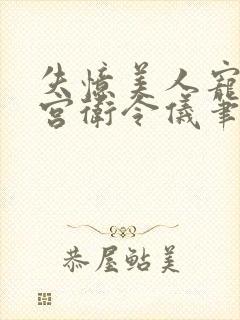 失憶美人寵
宮衛令儀筆
恭屋鮎美